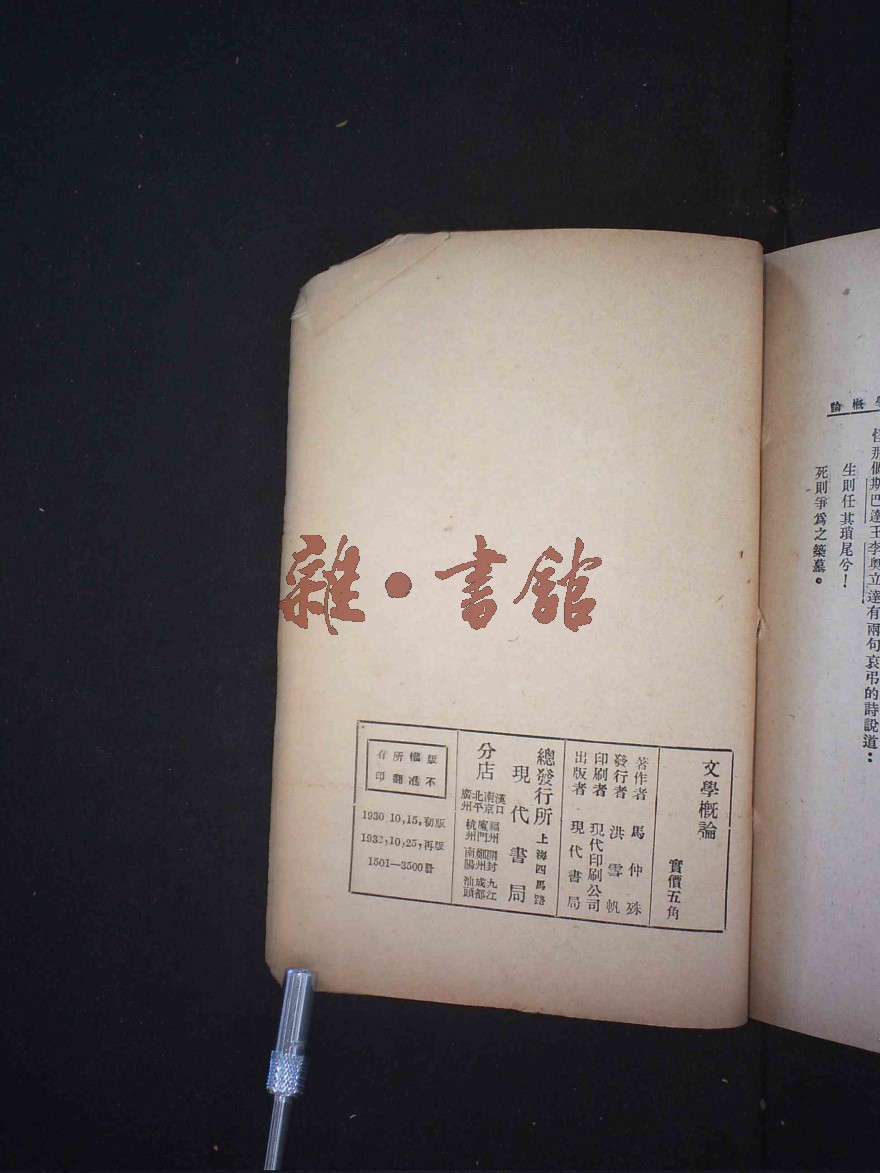 學概論
斯巴達王李奧立達有兩句哀弔的詩說道：
生則任其瑣尾兮！
死則爭爲之築墓。
雜·書館
文學概論
實價五角
著作者 馬仲殊
發行者 洪雪帆
印刷者 現代印刷公司
出版者 現代書局
總發行所 上海四馬路
現代書局
分店
漢口 福州 開封 九江
南京 廈門 鄭州 成都
北平 杭州 南陽 汕頭
廣州
版權所有
不准翻印
1930,10,15,初版
1932,10,25,再版
1501—3500冊